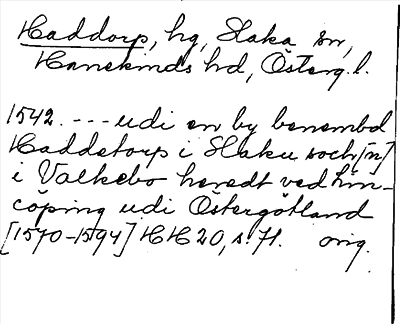 Haddorp, hg, Slaka sn,
Hanekinds hd, Österg.l.
1542. --- udi en by benembd
Haddetorp i Slaku soch[n]
i Valkebo heredt ved Lin-
cöping udi Östergötland
[1570-1594] HH 20, s. 71. orig.